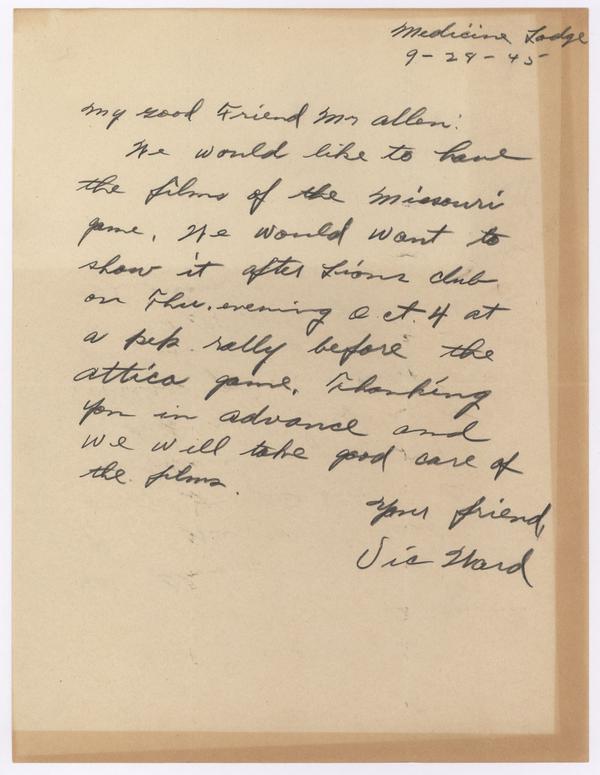 Medicine Lodge
9-28-45
My good Friend Mr Allen:
We would like to have
the films of the Missouri
game. We would want to
show it after Lions club
on Thu. evening Oct. 4 at
a pep rally before the
Attica game. Thanking
you in advance and
we will take good care of
the films.
Your friend,
Vic Ward